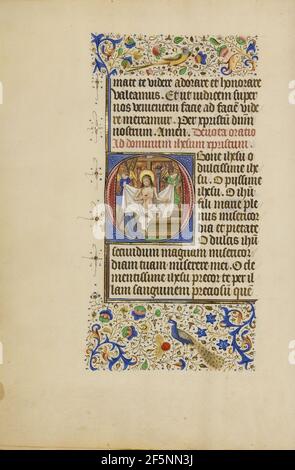 mate te videre adorare et honorare
valeamus. Et ut iudicem super
nos venientem facie ad faciē vide
re mereamur. Per xpristum dnm
nostrum. Amen. Deuota oratio
Ad dominum ihesum xpristum.
Bone ihesu o
dulcissime ihe
su. O pijssime
ihesu. O ihū
fili marie ple
nus misericor
dia et pietate
O dulcis ihū
secundum magnam misericor
diam tuam miserere mei. O cle
mentissime ihesu precor te per il
lam sanguinem preciosū quē
alamy
Image ID: 2F5NN3J
www.alamy.com